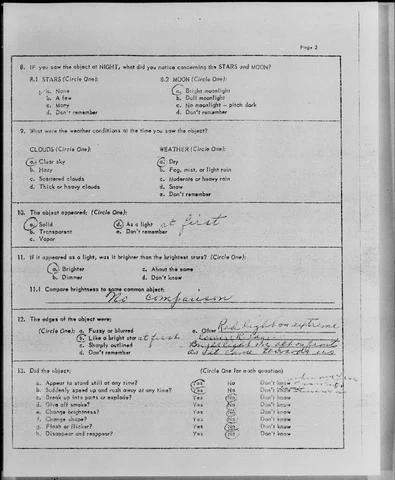 Page 2
8. IF you saw the object at NIGHT, what did you notice concerning the STARS and MOON?
8.1 STARS (Circle One): 8.2 MOON (Circle One):
a. None a. Bright moonlight
b. A few b. Dull moonlight
c. Many c. No moonlight — pitch dark
d. Don't remember d. Don't remember
9. What were the weather conditions at the time you saw the object?
CLOUDS (Circle One): WEATHER (Circle One):
a. Clear sky a. Dry
b. Hazy b. Fog, mist, or light rain
c. Scattered clouds c. Moderate or heavy rain
d. Thick or heavy clouds d. Snow
e. Don't remember
10. The object appeared: (Circle One):
a. Solid d. As a light at first
b. Transparent e. Don't remember
c. Vapor
11. If it appeared as a light, was it brighter than the brightest stars? (Circle One):
a. Brighter c. About the same
b. Dimmer d. Don't know
11.1 Compare brightness to some common object:
No comparison
12. The edges of the object were:
(Circle One): a. Fuzzy or blurred e. Other Red light on extreme
b. Like a bright star at first
c. Sharply outlined Bright light
d. Don't remember as it came towards us
13. Did the object: (Circle One for each question)
a. Appear to stand still at any time? Yes No Don't know
b. Suddenly speed up and rush away at any time? Yes No Don't know
c. Break up into parts or explode? Yes No Don't know
d. Give off smoke? Yes No Don't know
e. Change brightness? Yes No Don't know
f. Change shape? Yes No Don't know
g. Flash or flicker? Yes No Don't know
h. Disappear and reappear? Yes No Don't know